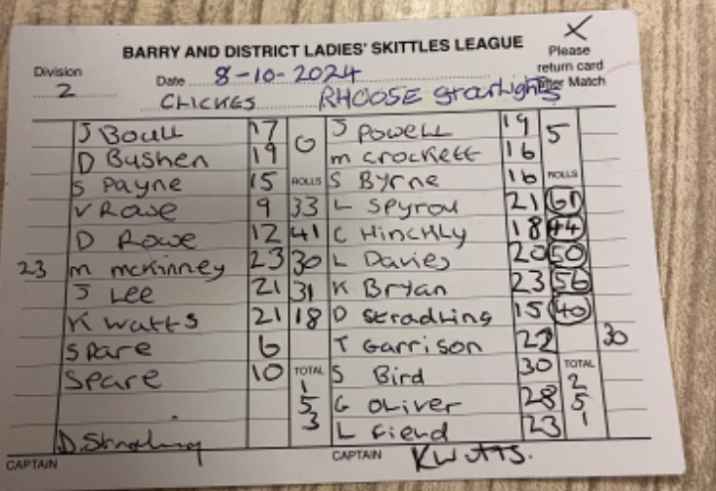 BARRY AND DISTRICT LADIES' SKITTLES LEAGUE
X
Please return card after Match
Division 2
Date 8-10-2024
CLICKES RHOOSE Starlights
J Boull 17 0 J Powell 19 5
D Bushen 19 m crockett 16
S Payne 15 ROLLS S Byrne 16 ROLLS
V Rowe 9 33 L Spyrou 21 61
D Rowe 12 41 C Hinchly 18 44
23 m mckinney 23 30 L Davies 20 50
J Lee 21 31 K Bryan 23 56
K Watts 21 18 D Stradling 15 40
Spare 6 T Garrison 22 30
Spare 10 TOTAL 153 S Bird 30 TOTAL 251
G Oliver 28
L Fiend 23
D. Stradling
CAPTAIN
CAPTAIN K Watts.